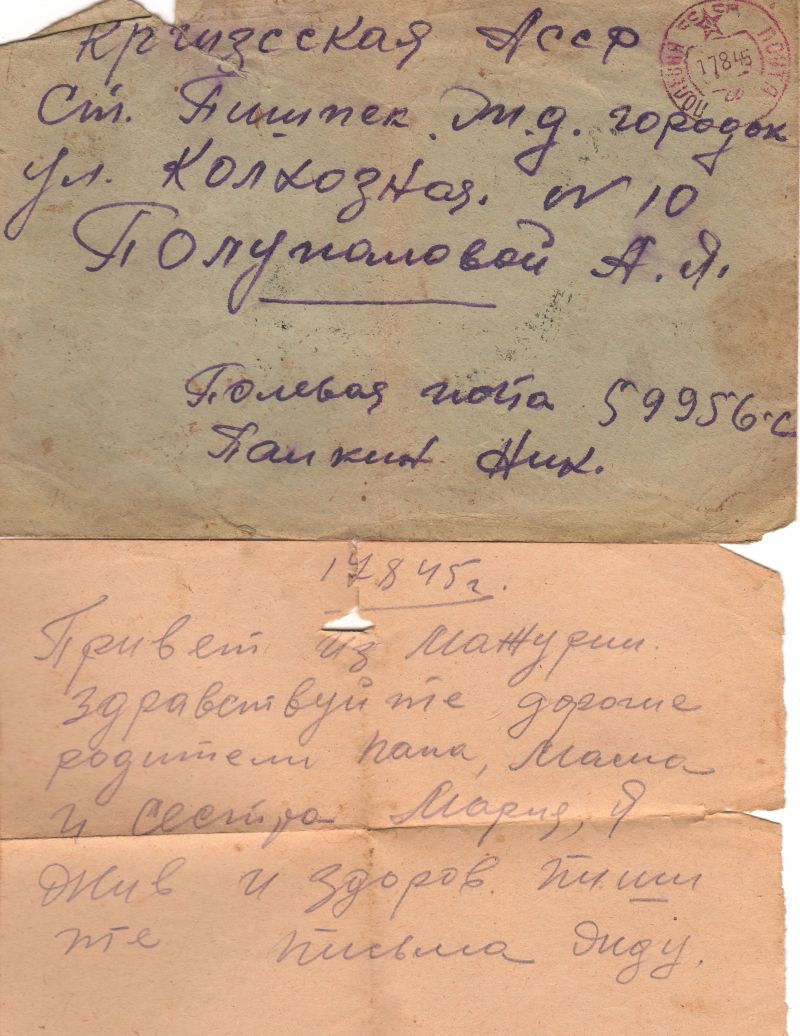 Кргизсская АССР
ПОЛЕВАЯ ПОЧТА СССР
17845
Ст. Пишпек. Ж.д. городок
ул. Колхозная. № 10
Полупаловой А.Я.
Полевая почта 59956-С
Палкин Ник.
17845г.
Привет из Мажурии.
Здравствуйте дорогие
родители папа, Мама
и сестра Мария, Я
Жив и здоров. пиши
те письма Жду.